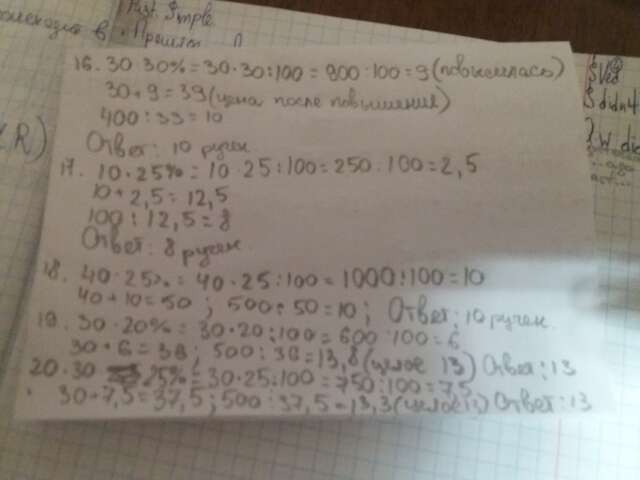 Past Simple
происходило в
16. 30 30% = 30·30:100 = 900:100 = 9 (повысилась)
30+9=39 (цена после повышения)
400:39=10
Ответ: 10 ручек
17. 10·25% = 10·25:100=250:100=2,5
10+2,5=12,5
100:12,5=8
Ответ: 8 ручек.
18. 40·25% = 40·25:100=1000:100=10
40+10=50; 500:50=10; Ответ: 10 ручек.
19. 30·20% = 30·20:100=600:100=6
30+6=36; 500:36=13,8 (целое 13) Ответ: 13
20. 30 25% = 30·25:100=750:100=7,5
30+7,5=37,5; 500:37,5=13,3 (целое) Ответ: 13
R)
didn't